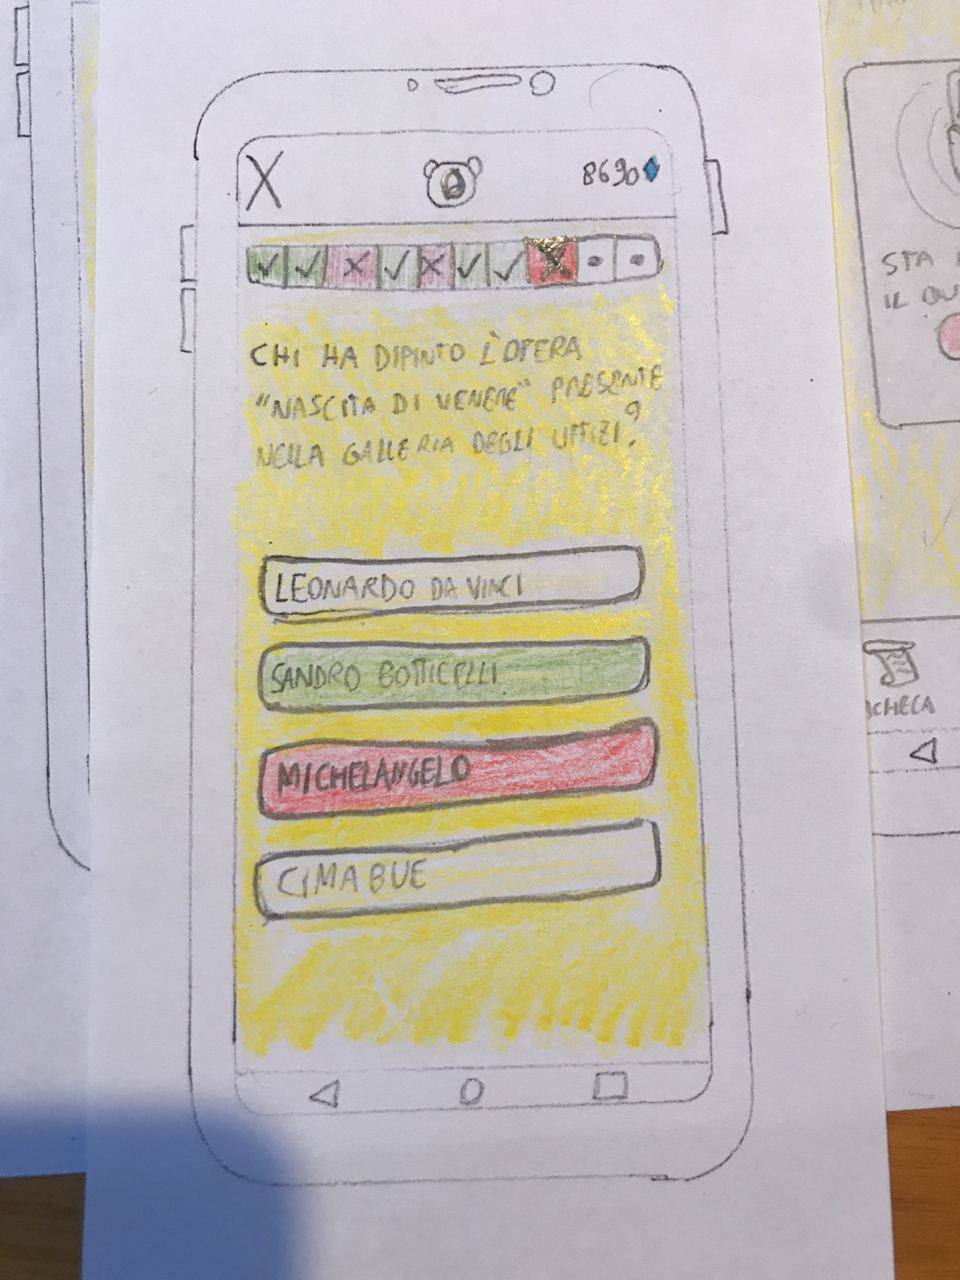 X
8690
CHI HA DIPINTO L'OPERA
"NASCITA DI VENERE" PRESENTE
NELLA GALLERIA DEGLI UFFIZI?
LEONARDO DA VINCI
SANDRO BOTTICELLI
MICHELANGELO
CIMABUE
STA
IL QU
ACHECA